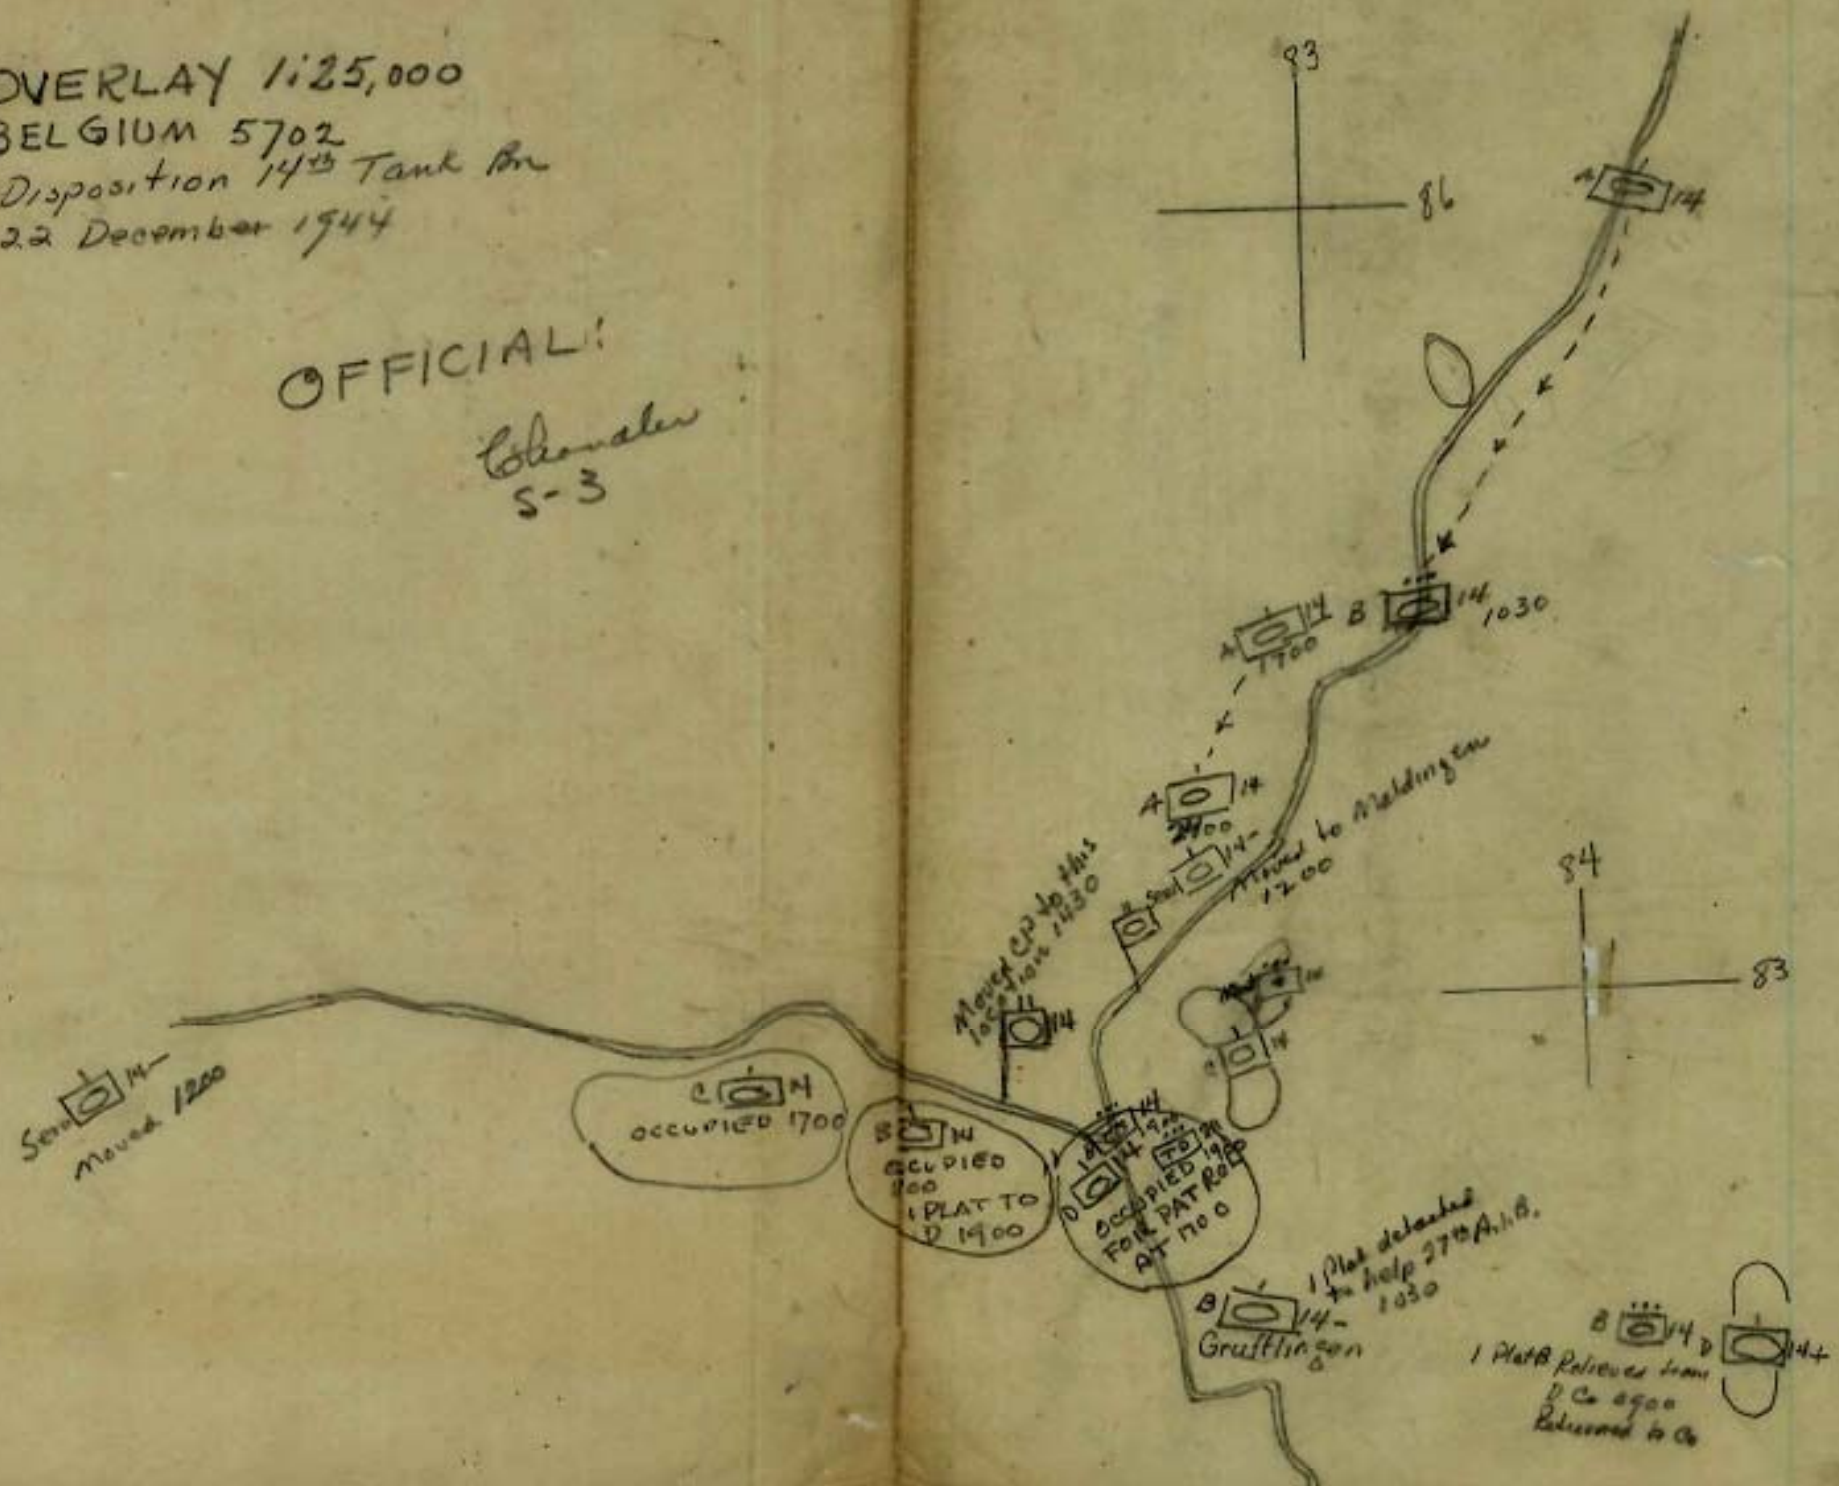 OVERLAY 1:25,000
BELGIUM 5702
Disposition 14th Tank Bn
22 December 1944
OFFICIAL:
S-3
83
86
A 14
B 14
1030
A 14
1700
A 14
Moved to Maldingen
1200
Serv 14-
Moved CP to this
location 1430
14
84
83
C 14
Serv 14-
Moved 1200
C 14
OCCUPIED 1700
B 14
OCCUPIED
1 PLAT TO
D 1900
14
TD
D 14
OCCUPIED
FOR PATROL
AT 1700
1 Plat detached
to help 27th A.I.B.
1030
B 14-
Gruftlingen
B 14
D 14+
1 Plat B Relieved from
D Co 0900
Returned to Co